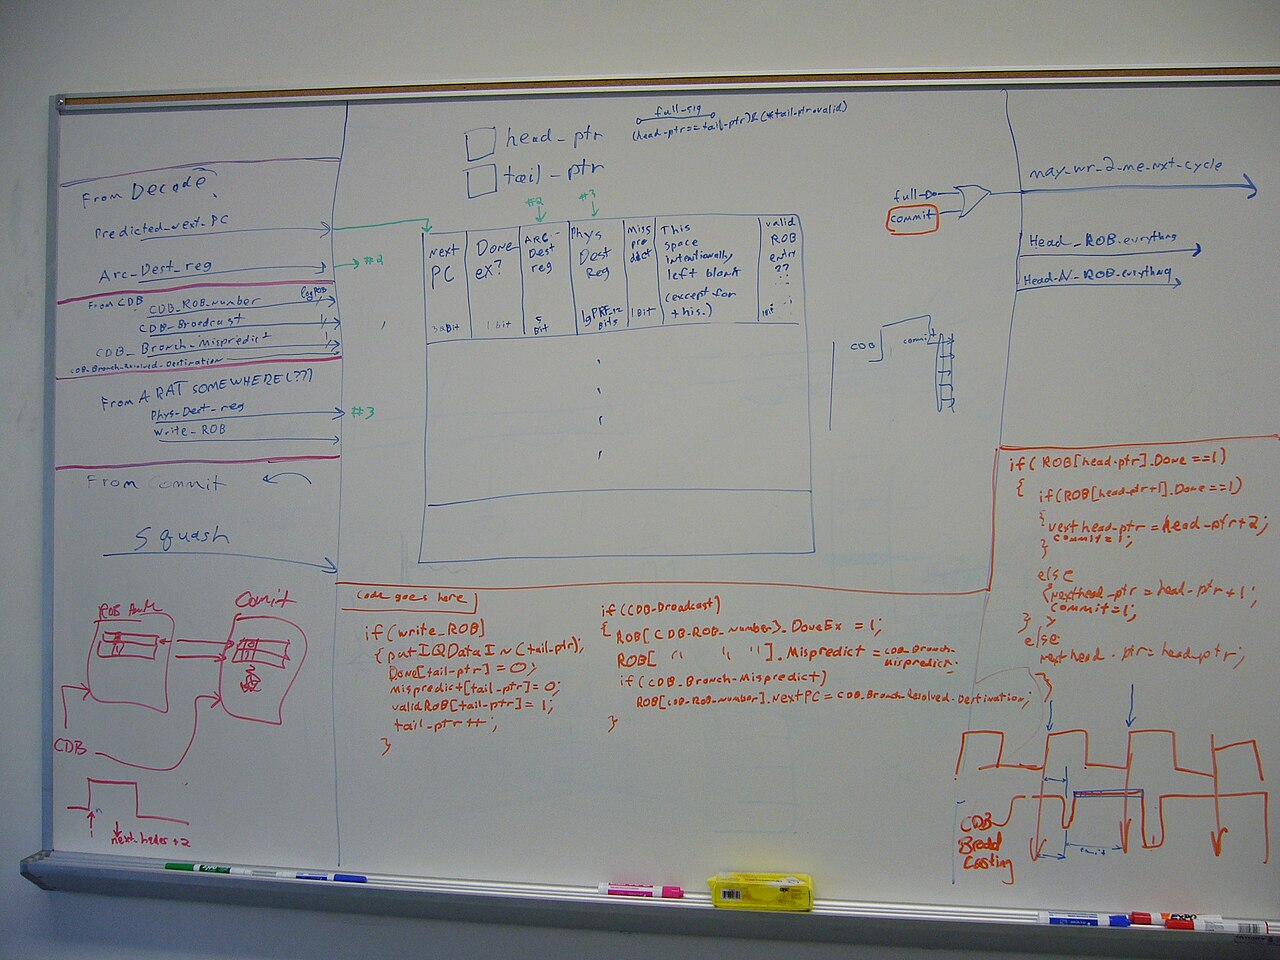 From Decode
Predicted_next_PC
Arc_Dest_reg
#2
From CDB
CDB_ROB_number
CDB_Broadcast
1
CDB_Branch_Mispredict
1
CDB_Branch_Resolved_Destination
From A RAT SOMEWHERE(??)
Phys_Dest_reg
#3
Write_ROB
From Commit
Squash
Commit
CDB
head_ptr
tail_ptr
full_sig
(head_ptr==tail_ptr)&(*tail_ptr.valid)
#2
#3
Next
PC
32Bit
Done
ex?
1 bit
ARC
Dest
reg
5
Bit
Phys
Dest
Reg
Bits
Miss
pre
dict
1Bit
This
space
intentionally
left blank
(except for
this.)
valid
ROB
entry
??
1Bit
full
commit
may_wr_2_me_nxt_cycle
Head_ROB.everything
Head_N_ROB.everything
CDB
commit
Code goes here
if(write_ROB)
{putIQDataIn(tail_ptr);
Done[tail_ptr]=0;
mispredict[tail_ptr]=0;
validROB[tail_ptr]=1;
tail_ptr++;
}
if(CDB_Broadcast)
{ROB[CDB_ROB_number].DoneEx = 1;
ROB[ " " "].Mispredict = CDB_Branch_
mispredict;
if(CDB_Branch_Mispredict)
ROB[CDB_ROB_number].NextPC = CDB_Branch_Resolved_Destination;
}
if(ROB[head_ptr].Done==1)
{ if(ROB[head_ptr+1].Done==1)
{next head_ptr = head_ptr+2;
commit=1;
}
else
{next head_ptr = head_ptr+1;
commit=1;
}
}
else
next head_ptr = head_ptr;
}
CDB
Broad
Casting